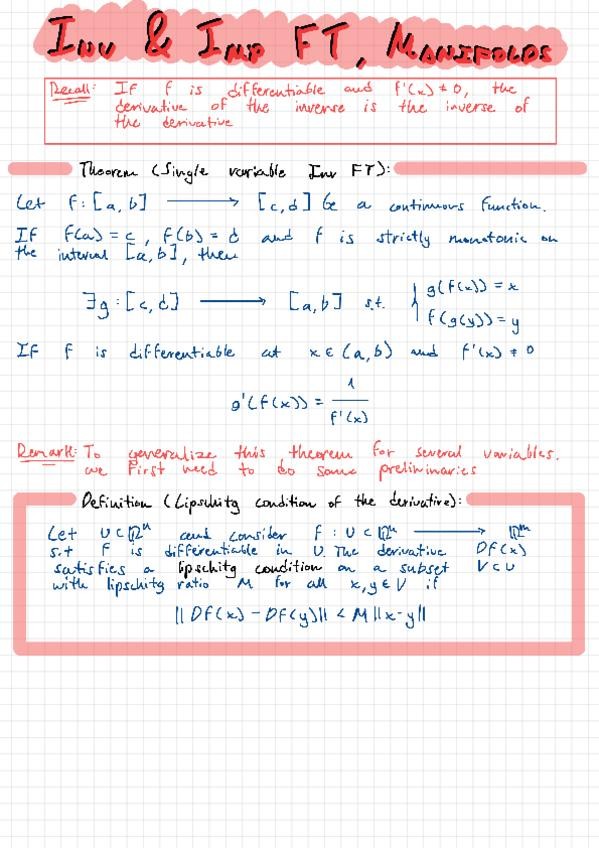 INV & IMP FT, MANIFOLDS
Recall: If f is differentiable and f'(x) ≠ 0, the
derivative of the inverse is the inverse of
the derivative
Theorem (Single variable Inv FT):
Let f: [a, b] ⟶ [c, d] be a continuous function.
If f(a) = c, f(b) = d and f is strictly monotonic on
the interval [a, b], then
∃g : [c, d] ⟶ [a, b] s.t. { g(f(x)) = x
f(g(y)) = y
If f is differentiable at x ∈ (a, b) and f'(x) ≠ 0
g'(f(x)) = 1 / f'(x)
Remark: To generalize this theorem for several variables.
we first need to do some preliminaries
Definition (Lipschitz condition of the derivative):
Let U ⊂ ℝⁿ and consider f : U ⊂ ℝⁿ ⟶ ℝᵐ
s.t f is differentiable in U. The derivative Df(x)
satisfies a lipschitz condition on a subset V ⊂ U
with lipschitz ratio M for all x, y ∈ V if
|| Df(x) - Df(y) || < M || x - y ||